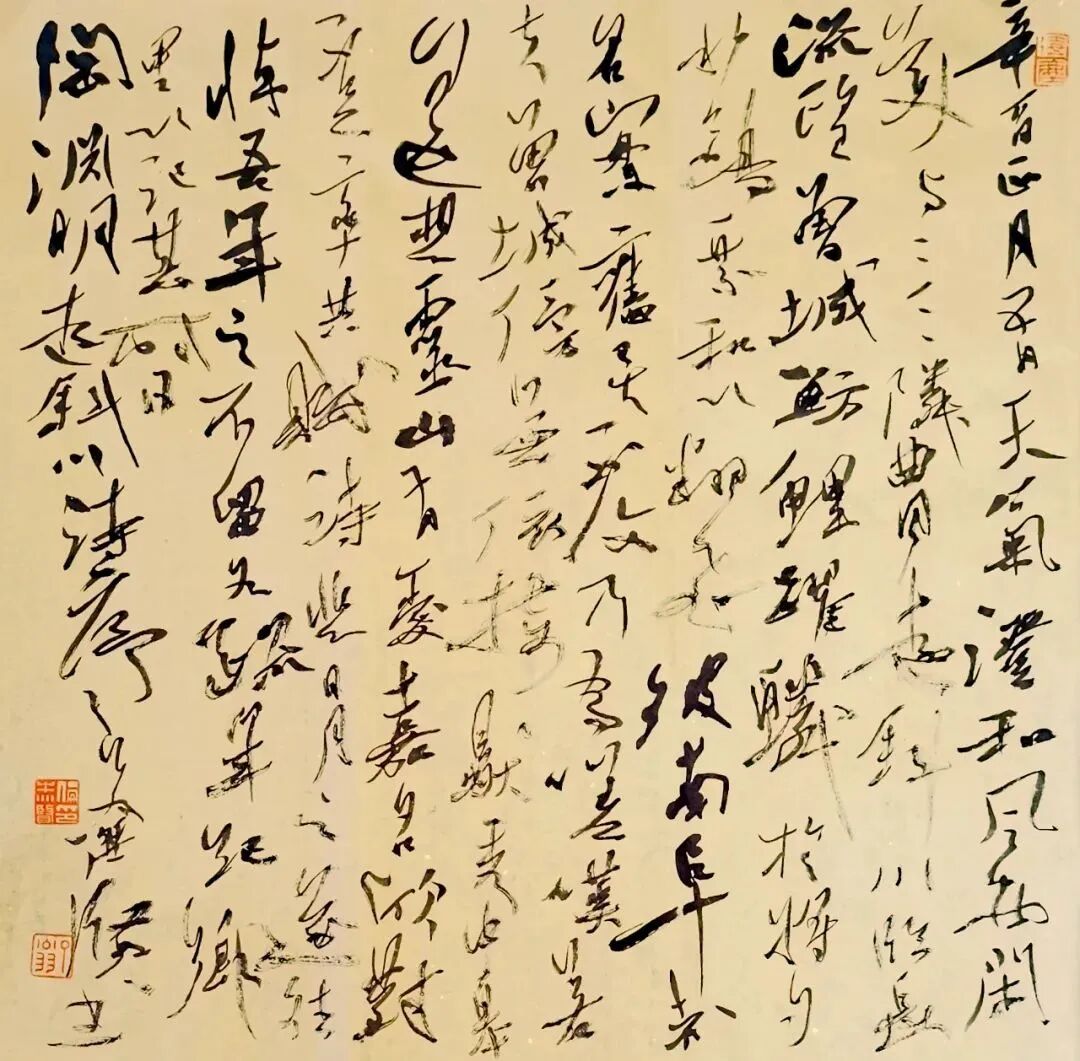 辛酉正月五日天氣澄和風物閑
美与二三隣曲同遊斜川臨長
流望曾城魴鯉躍鱗於將夕
水鷗乘和以翻飛彼南阜者
名實舊矣不復乃為嗟嘆若
夫曾城傍無依接獨秀中皋
遙想靈山有愛嘉名欣對
不足率共賦詩悲日月之遂往
悼吾年之不留各疏年紀鄉
里以記其時日
陶淵明遊斜川詩序